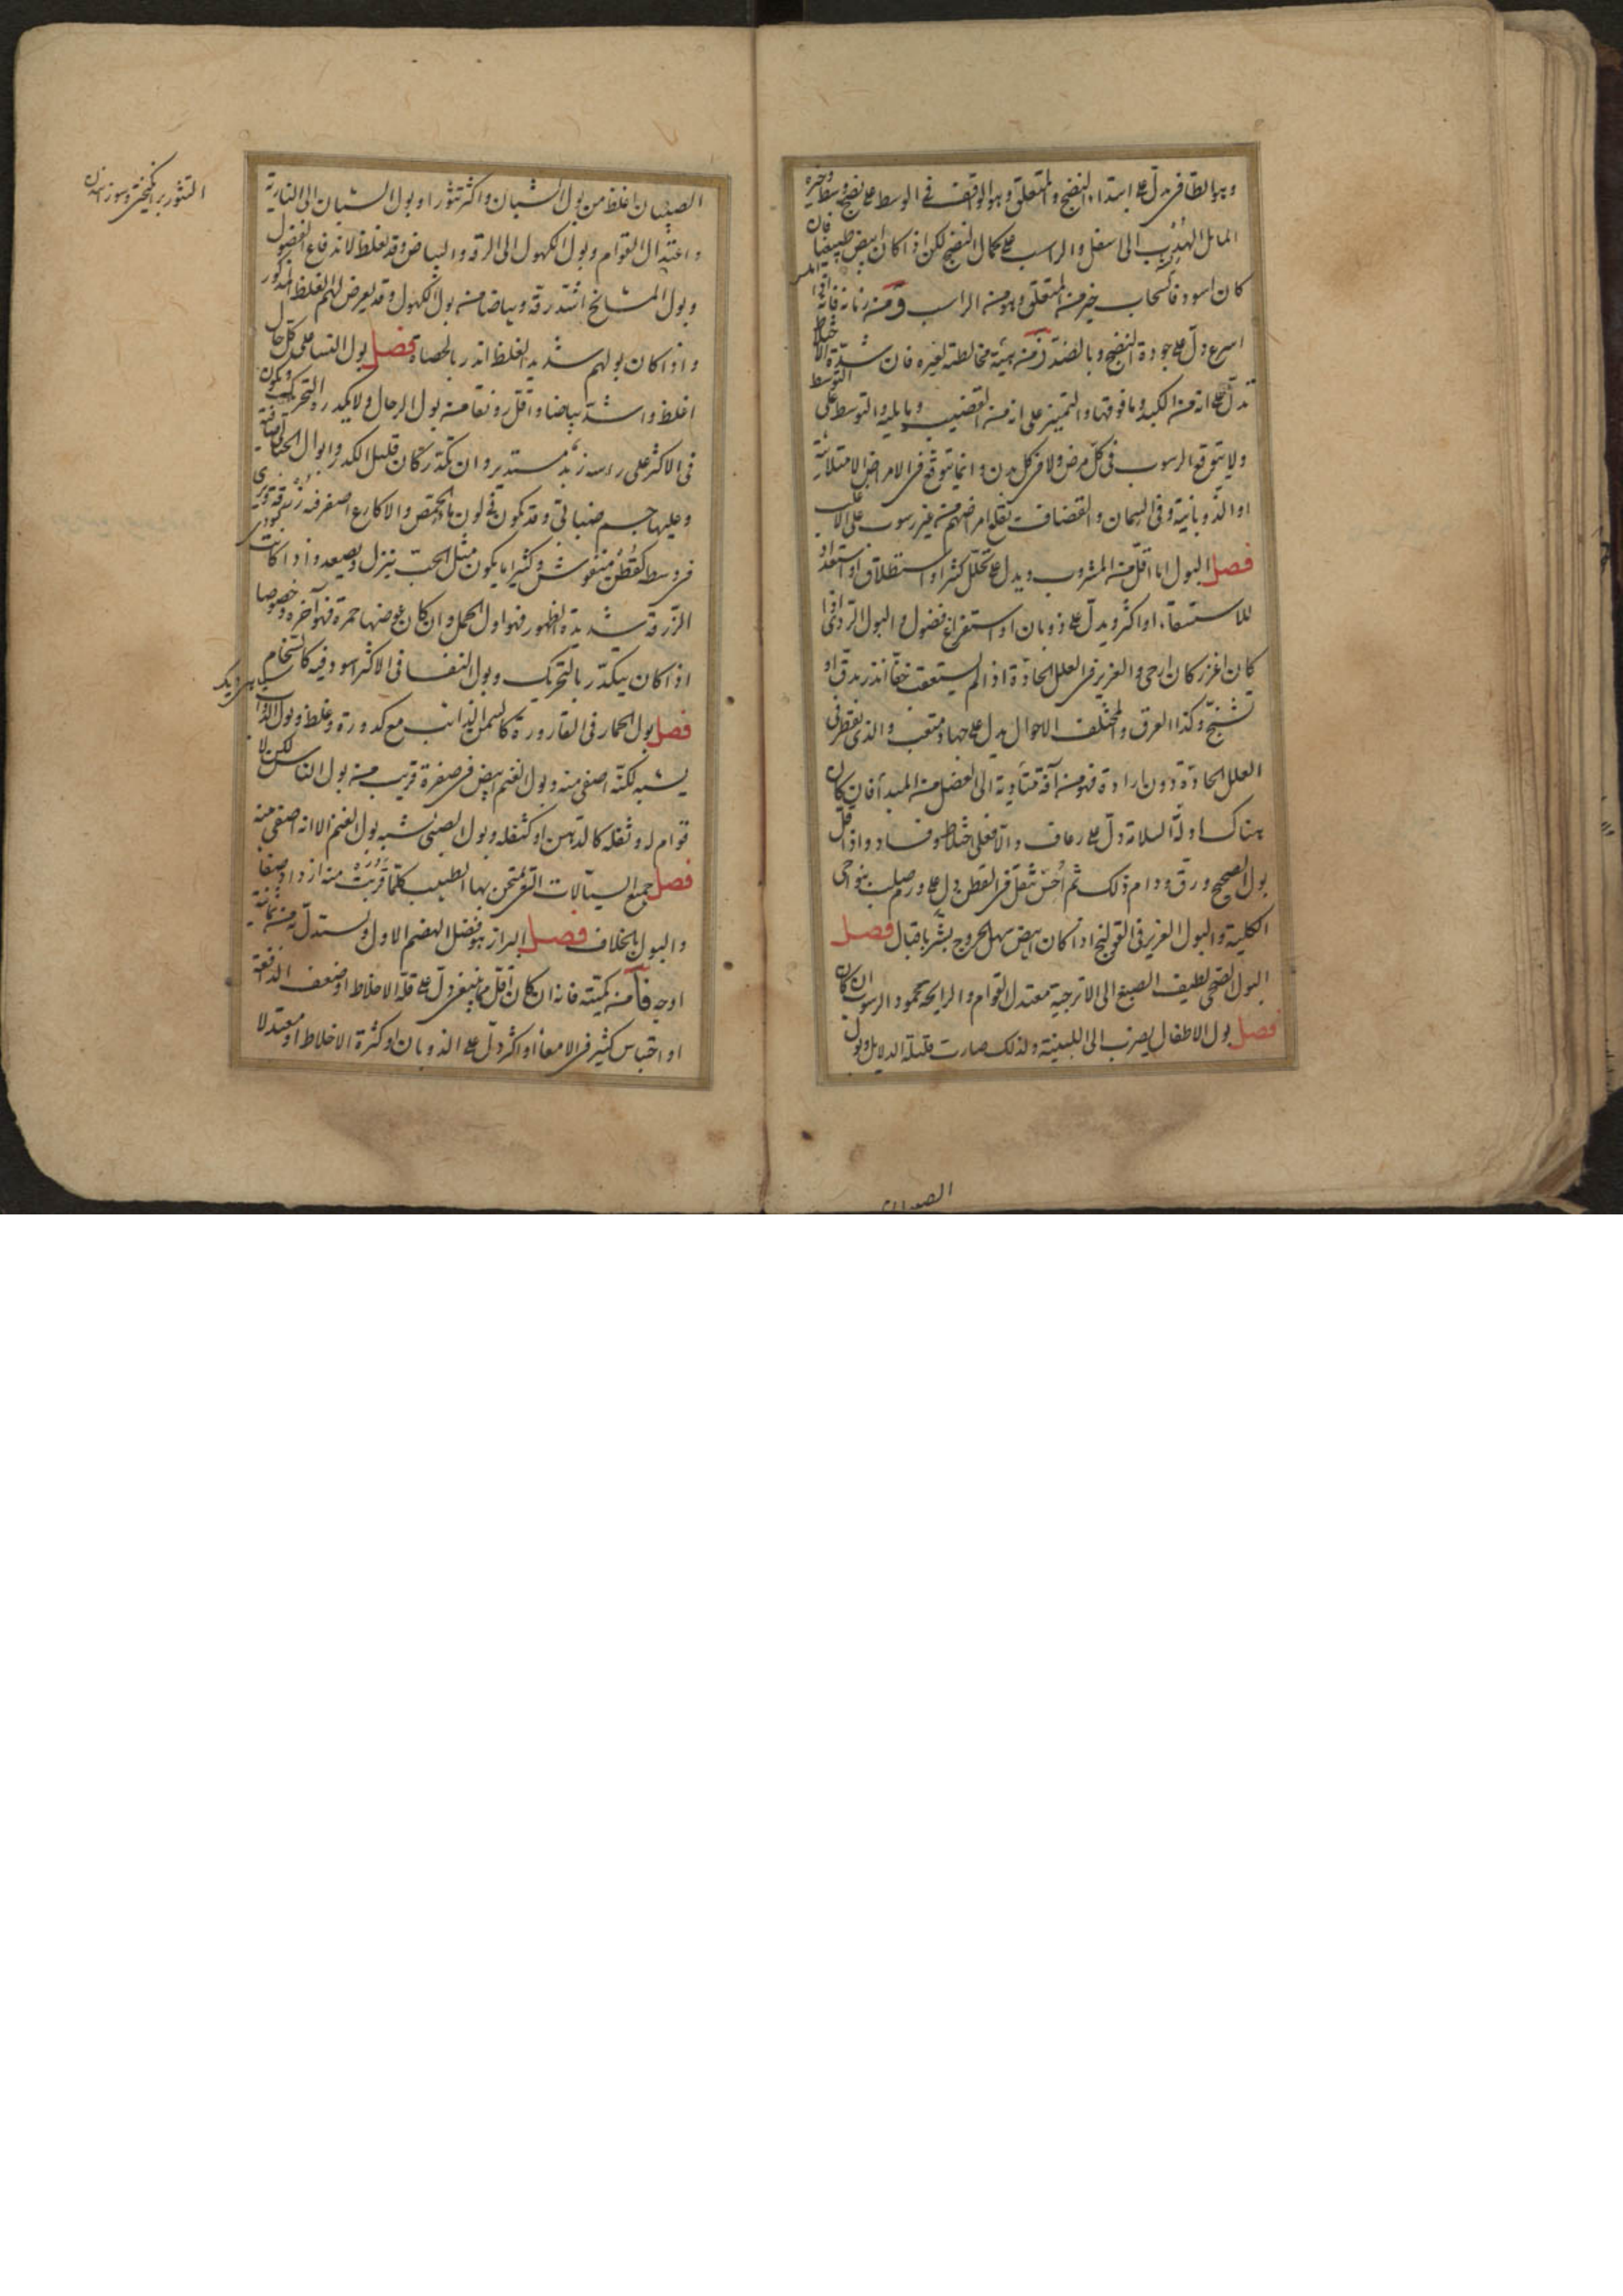 وهو الطافى يدل على ابتداء النضج والمتعلق وهو الواقف فى الوسط على نضج وسط وخيره
المائل الهدب الى اسفل والراسب على كمال النضج لكن اذا كان ابيض طبيعيا فان
كان اسود فالسحاب خير من المتعلق وهو من الراسب ومن زمانه فانه اذا
اسرع دل على جودة النضج وبالضد ومن هيئة مخالطته لغيره فان شدة الاختلاط
تدل على انه من الكبد وما فوقها والتميز على انه من القضيب وما يليه والتوسط على التوسط
ولا يتوقع الرسوب فى كل مرض ولا فى كل بدن وانما يتوقع فى الامراض الامتلائية
او الذوبانية وفى السمان والقضاف تقلع امراضهم من غير رسوب على الاغلب
فصل البول اما اقل من المشروب ويدل على تحلل كثير او استطلاق او استعداد
للاستسقاء او اكثر ويدل على ذوبان او استفراغ فضول والبول الردى اذا
كان اغزر كان ارجى والغزير فى العلل الحادة اذا لم يستعقب خفا انذر بدق او
تشنج وكذا العرق والمختلف الاحوال يدل على جهاد ومتعب والذى يقطر فى
العلل الحادة دون ارادة فهو من آفة متأدية الى العضل من المبدأ فان كان
هناك ادلة السلامة دل على رعاف والا فعلى اختلاط وفساد واذا قل
بول الصحيح ورق ودام ذلك ثم احس بثقل فى القطن دل على ورم صلب بنواحى
الكلية والبول الغزير فى القولنج اذا كان ابيض سهل الخروج يبشر باقبال فصل
البول الصحى لطيف الصبغ الى الاترجية معتدل القوام والرايحة محمود الرسوب ان كان
فصل بول الاطفال يضرب الى اللبنية ولذلك صارت قليلة الدلايل وبول
الصبيان
الصبيان اغلظ من بول الشبان واكثر تثورا وبول الشبان الى النارية
واعتدال القوام وبول الكهول الى الرقة والبياض وقد يغلظ لاندفاع الفضول
وبول المشايخ اشد رقة وبياضا من بول الكهول وقد يعرض لهم الغلظ المذكور
واذا كان بولهم شديد الغلظ انذر بالحصاة فصل بول النساء على كل حال
اغلظ واشد بياضا واقل رونقا من بول الرجال ولا يكدره التحريك ويكون
فى الاكثر على راسه زبد مستدير وان تكدر كان قليل الكدر وابوال الحبالى صافية
وعليها جسم ضبابى وقد تكون فى لون ماء الحمص والاكارع اصفر فيه زرقة ويرى
فى وسطه كقطن منفوش وكثيرا ما يكون مثل الحب ينزل ويصعد واذا كانت
الزرقة شديدة الظهور فهو اول الحمل وان كان عوضها حمرة فهو آخره وخصوصا
اذا كان يتكدر بالتحريك وبول النفساء فى الاكثر اسود فيه كالسخام
فصل بول الحمار فى القارورة كالسمن الذائب مع كدورة وغلظ وبول الدواب
يشبه لكنه اصفى منه وبول الغنم ابيض فى صفرة قريب من بول الناس لكن لا
قوام له وثفله كالدهن او كثفله وبول الصبى يشبه بول الغنم الا انه اصفى منه
فصل جميع السيالات التى يمتحن بها الطبيب كلما قربت منه ازداد صفاء
والبول بالخلاف فصل البراز هو فضل الهضم الاول ويستدل من ثمانية
اوجه فآ من كميته فانه ان كان اقل مما ينبغى دل على قلة الاخلاط او ضعف الدافعة
او احتباس كثير فى الامعاء او اكثر دل على الذوبان او كثرة الاخلاط او معتدلا
التثور برانگیختن
سیاهی دیگ